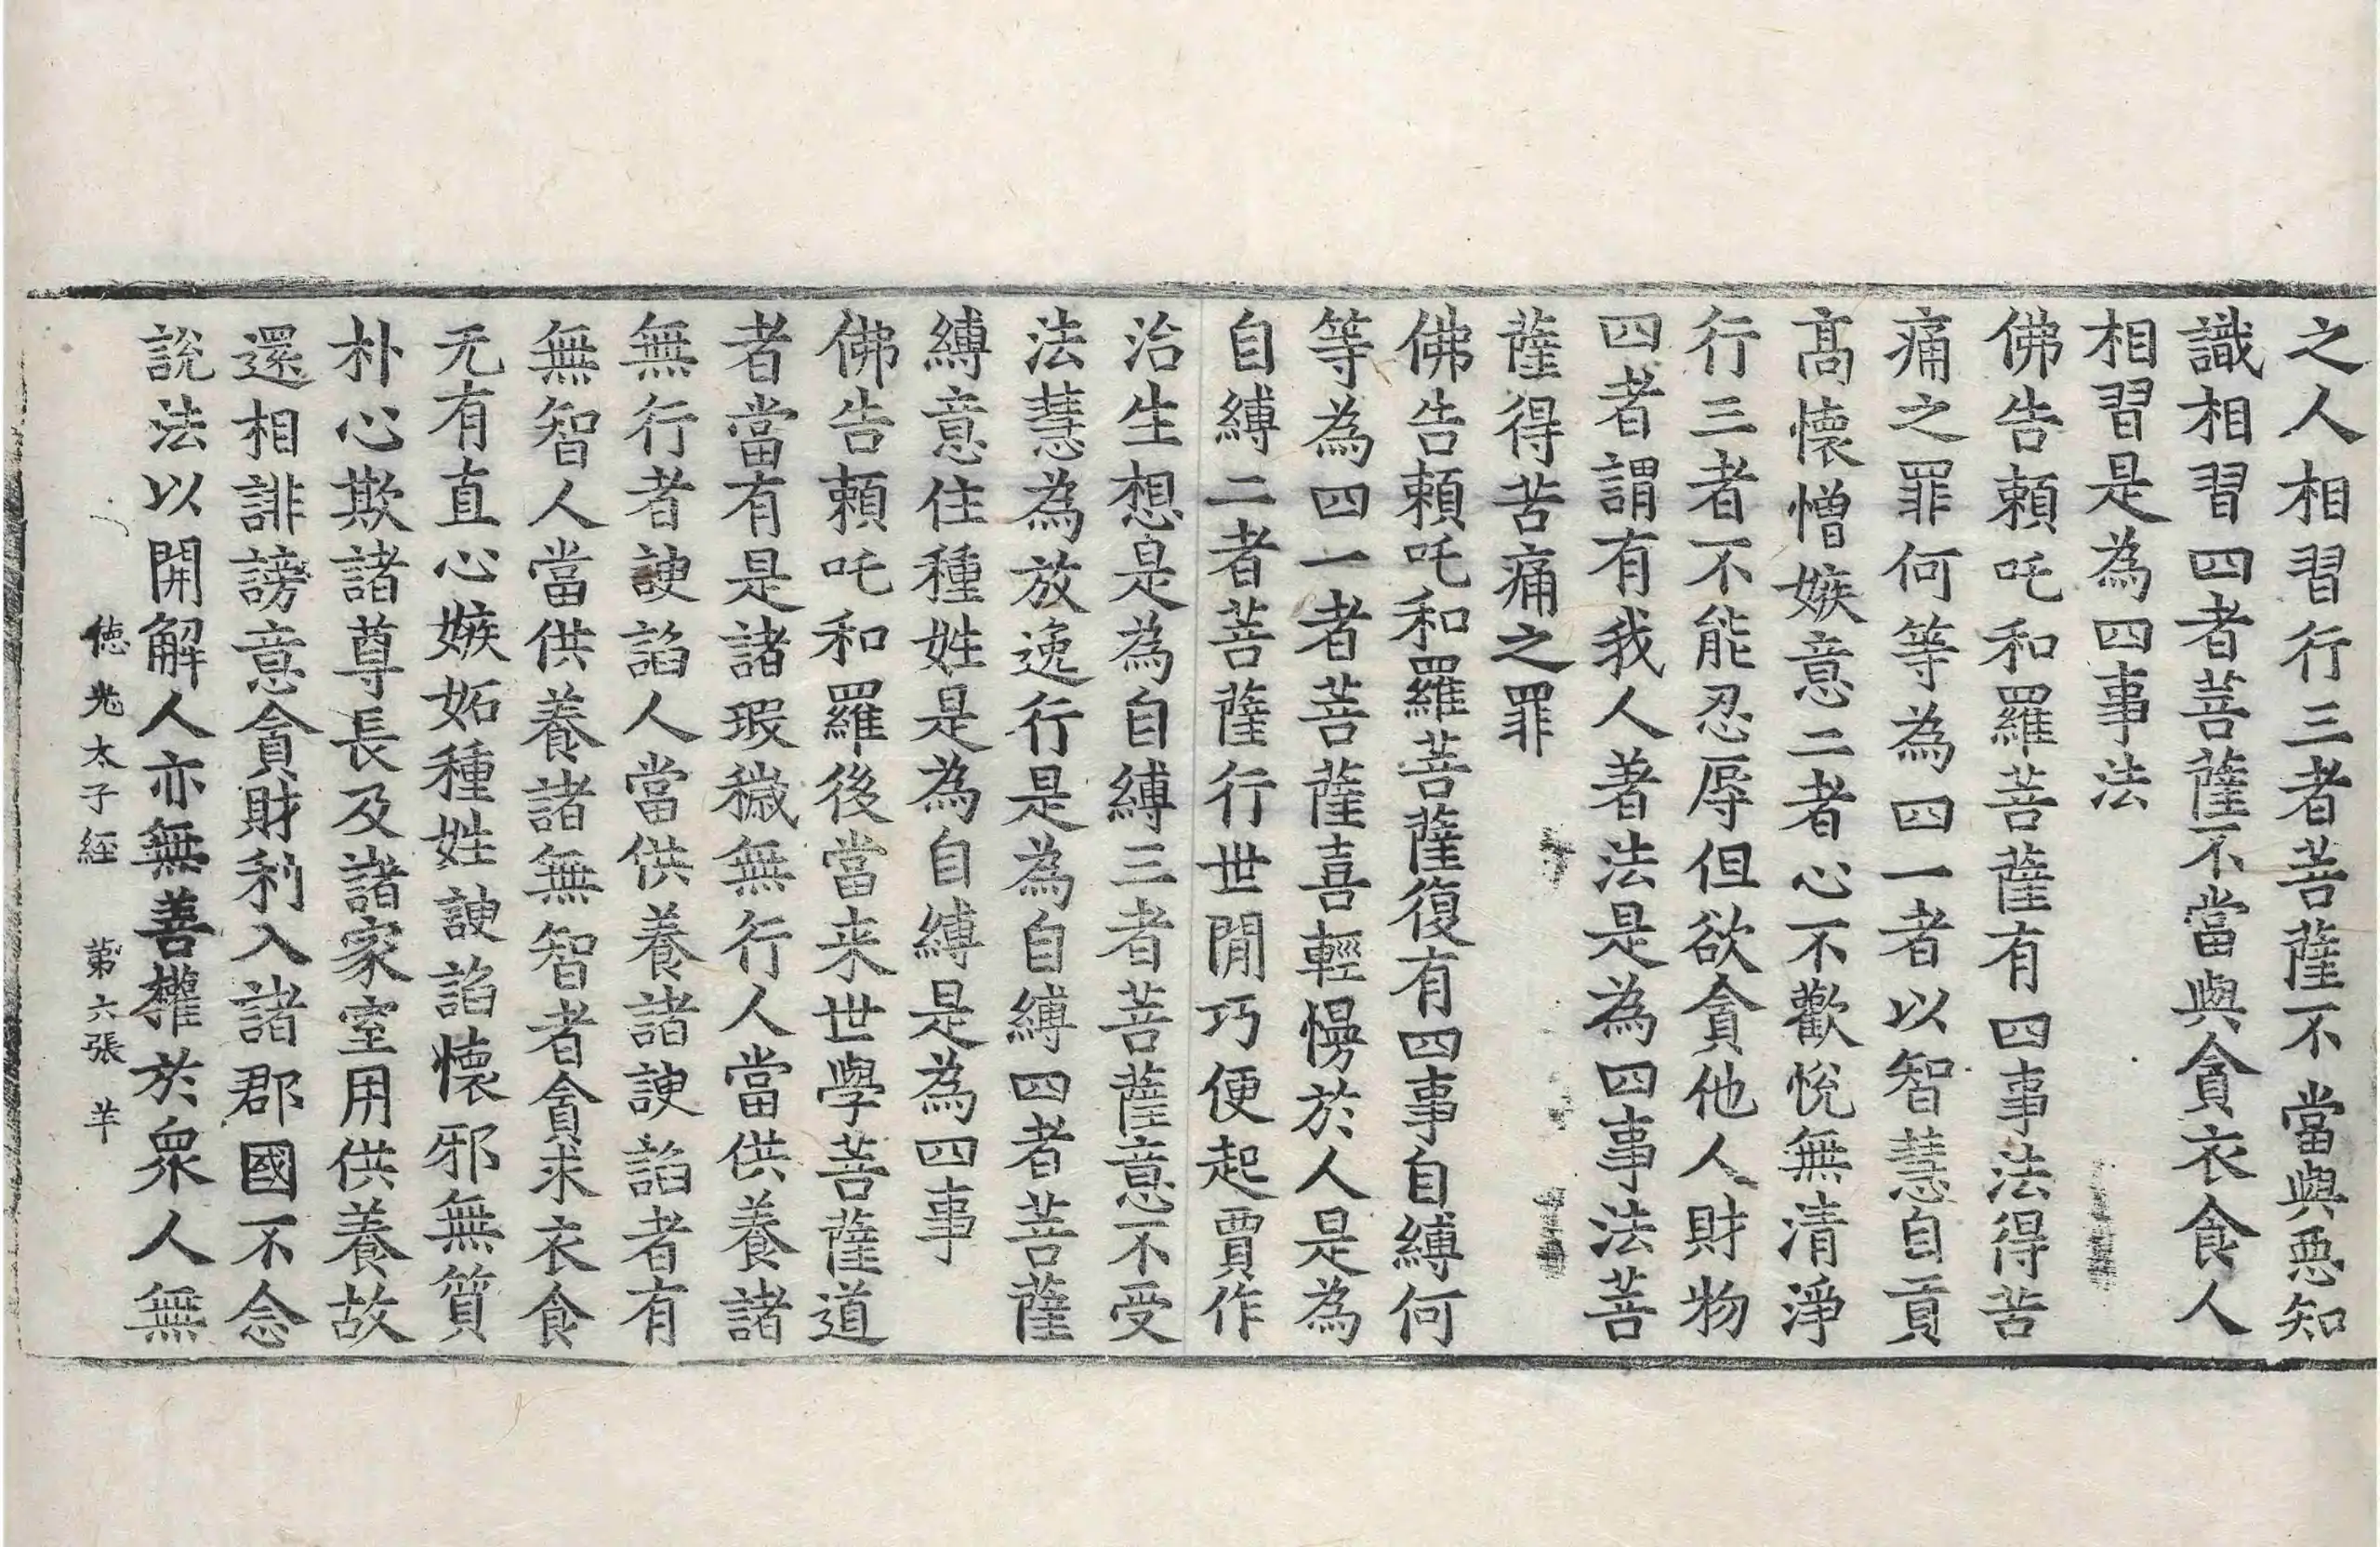 之人相習行三者菩薩不當與惡知
識相習四者菩薩不當與貪衣食人
相習是為四事法
佛告賴吒和羅菩薩有四事法得苦
痛之罪何等為四一者以智慧自貢
髙懷憎嫉意二者心不歡悅無清淨
行三者不能忍辱但欲貪他人財物
四者謂有我人著法是為四事法菩
薩得苦痛之罪
佛告賴吒和羅菩薩復有四事自縛何
等為四一者菩薩喜輕慢於人是為
自縛二者菩薩行世閒巧便起賈作
治生想是為自縛三者菩薩意不受
法慧為放逸行是為自縛四者菩薩
縛意住種姓是為自縛是為四事
佛告賴吒和羅後當来世學菩薩道
者當有是諸瑕穢無行人當供養諸
無行者諛諂人當供養諸諛諂者有
無智人當供養諸無智者貪求衣食
无有直心嫉妬種姓諛諂懷邪無質
朴心欺諸尊長及諸家室用供養故
還相誹謗意貪財利入諸郡國不念
說法以開解人亦無善權於衆人無
德光太子經 第六張 羊